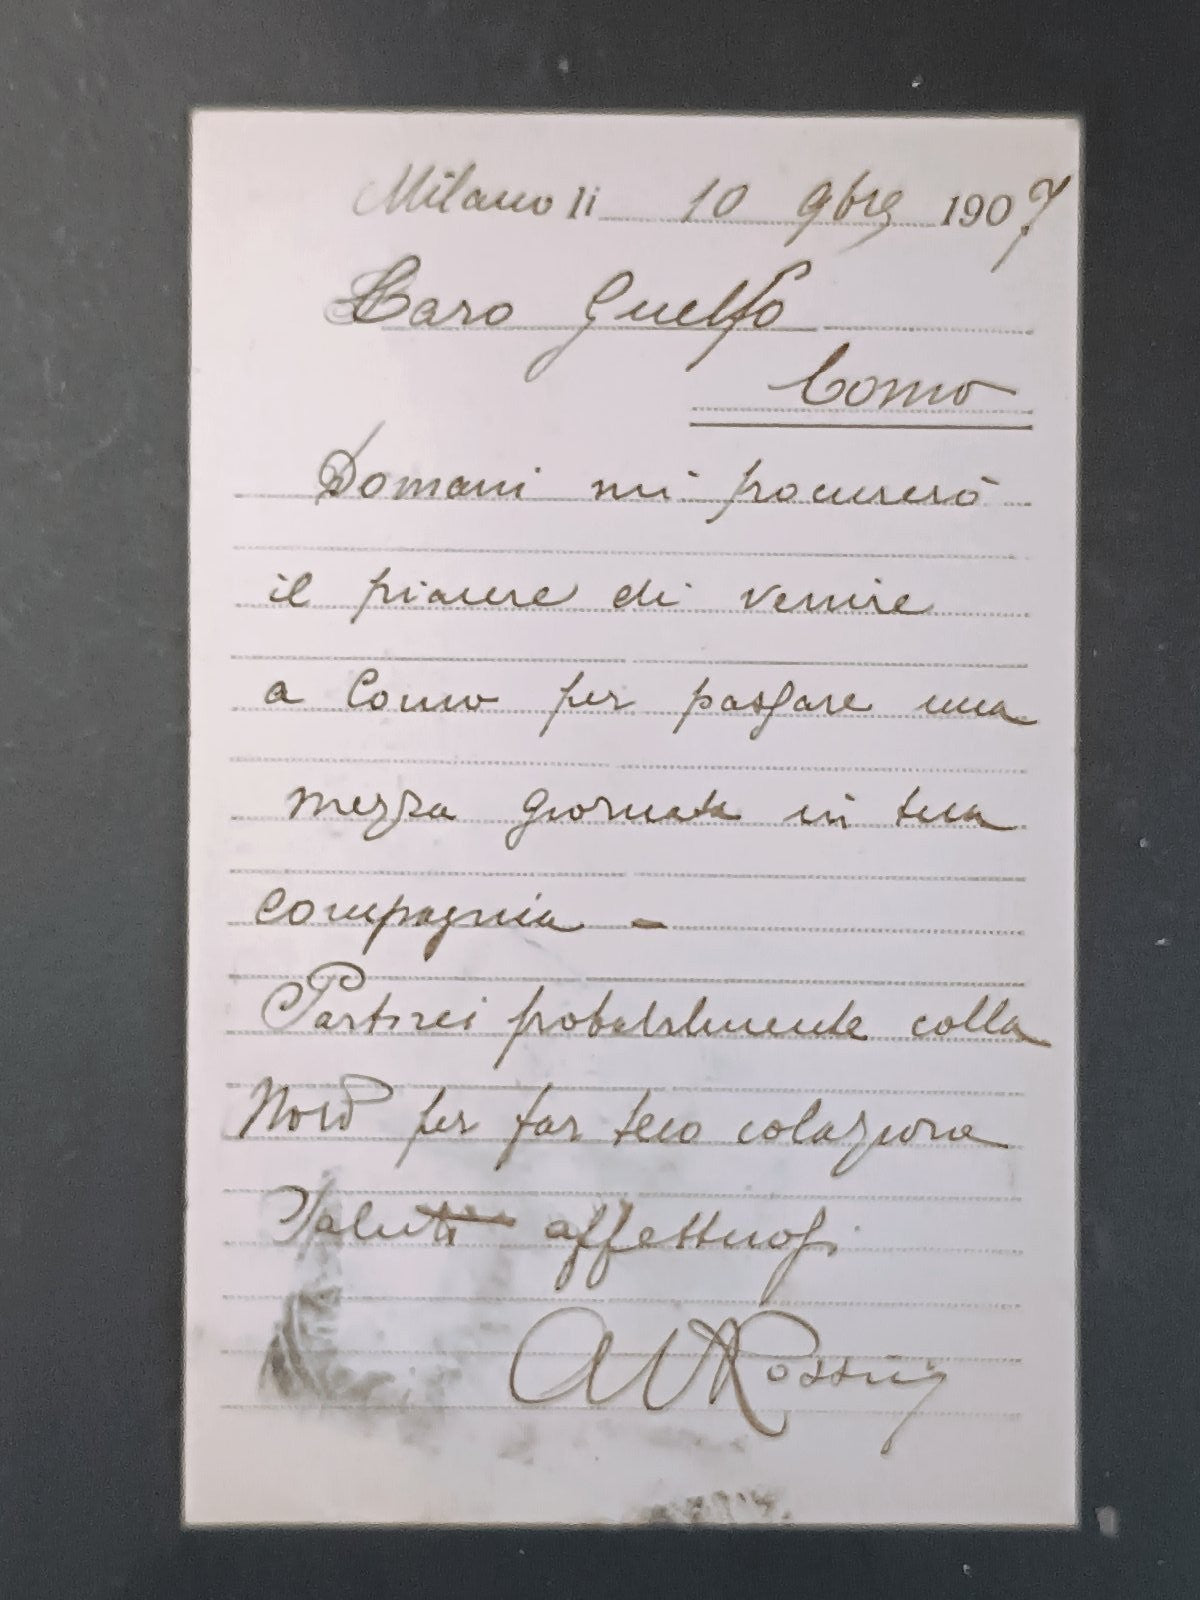 Milano li 10 9bre 1907
Caro Guelfo
Como
Domani mi procurerò
il piacere di venire
a Como per passare una
mezza giornata in tua
compagnia -
Partirei probabilmente colla
Nord per far teco colazione
Saluti affettuosi